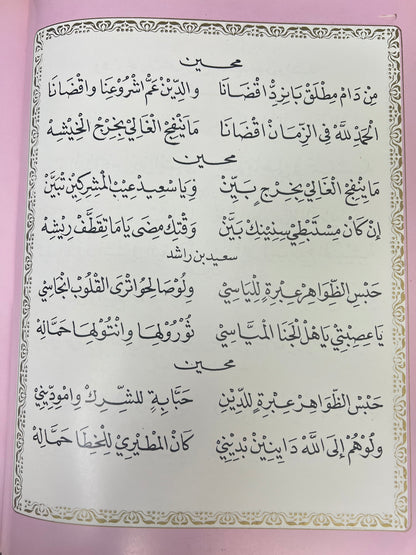 محين
مِنْ دَامْ مِطْلَقْ بَايْزِدّْ اقْضَانَا وِالدِّيْنْ عَمّْ اشْرُوعْنَا وِاقْضَانَا
الْحَمْدْ للَّهْ فِي الزِّمَانْ اقْضَانَا مَا يَنْفِعْ الْغَالِي بِخِرْجْ الْخِيْشِهْ
محين
مَا يَنْفِعْ الْغَالِي بِخِرْجٍ بَيِّنْ وَيَا سْعِيدْ عِيبْ الْمُشْرِكِيْنْ تْبَيَّنْ
إِنْ كَانْ مِسْتَبْطِي سِنِيْنِكْ بَيِّنْ وَقْتِكْ مِضَى يَامَا تِقَطَّفْ رِيْشِهْ
سعيد بن راشد
حَبْسِ الظَّوَاهِرْ عِبْرِةٍ لِلْيَاسِي وَلْوْصَالِحُوا تَرَى الْقُلُوبْ انْجَاسِي
يَا عِصِبْتِي يَاهْلْ الْجَنَا الْمَيَّاسِي ثُوْرُوْا لْهَا وِانْتُوْا لْهَا حَمَّالِهْ
محين
حَبْسِ الظَّوَاهِرْ عِبْرِةٍ لِلدِّيْنْ حَبَّابَةٍ لِلشِّرِكْ وِامْوِدِّيْنِي
وِلَوْهُمْ إِلَى اللَّهْ دَايْنِيْنْ بْدِيْنِي كَانْ الْمُطَيْرِي لِلْخِطَا حَمَّالِهْ